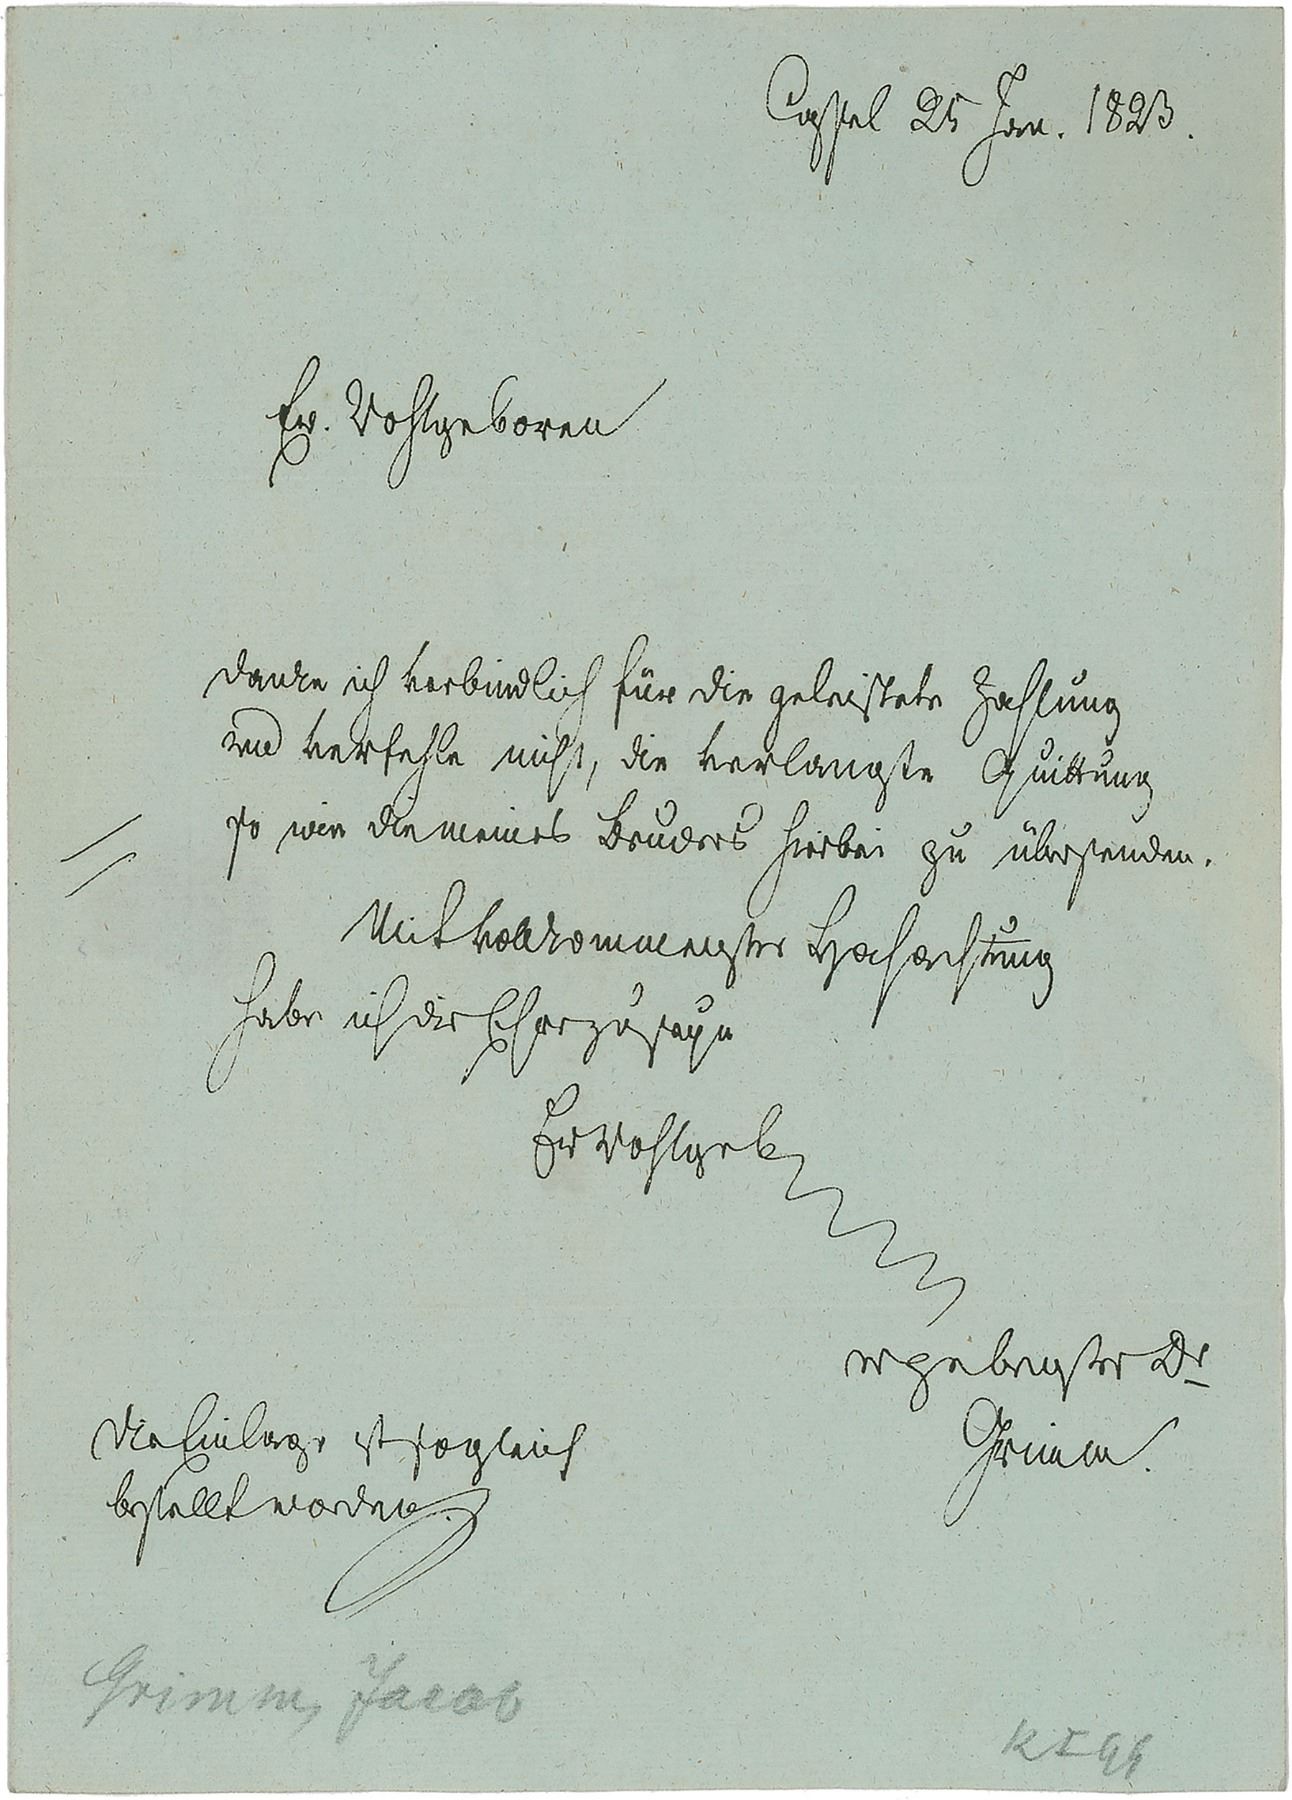 Cassel 25 Jan. 1823.
Ew. Wohlgeboren
danke ich verbindlich für die geleistete Zahlung
und verfehle nicht, die verlangte Quittung
so wie die meines Bruders hierbei zu übersenden.
Mit vollkommenster Hochachtung
habe ich die Ehre zu seyn
Ew Wohlgeb
ergebenster Dr
Grimm.
die Einlage ist sogleich
bestellt worden.
Grimm, Jacob